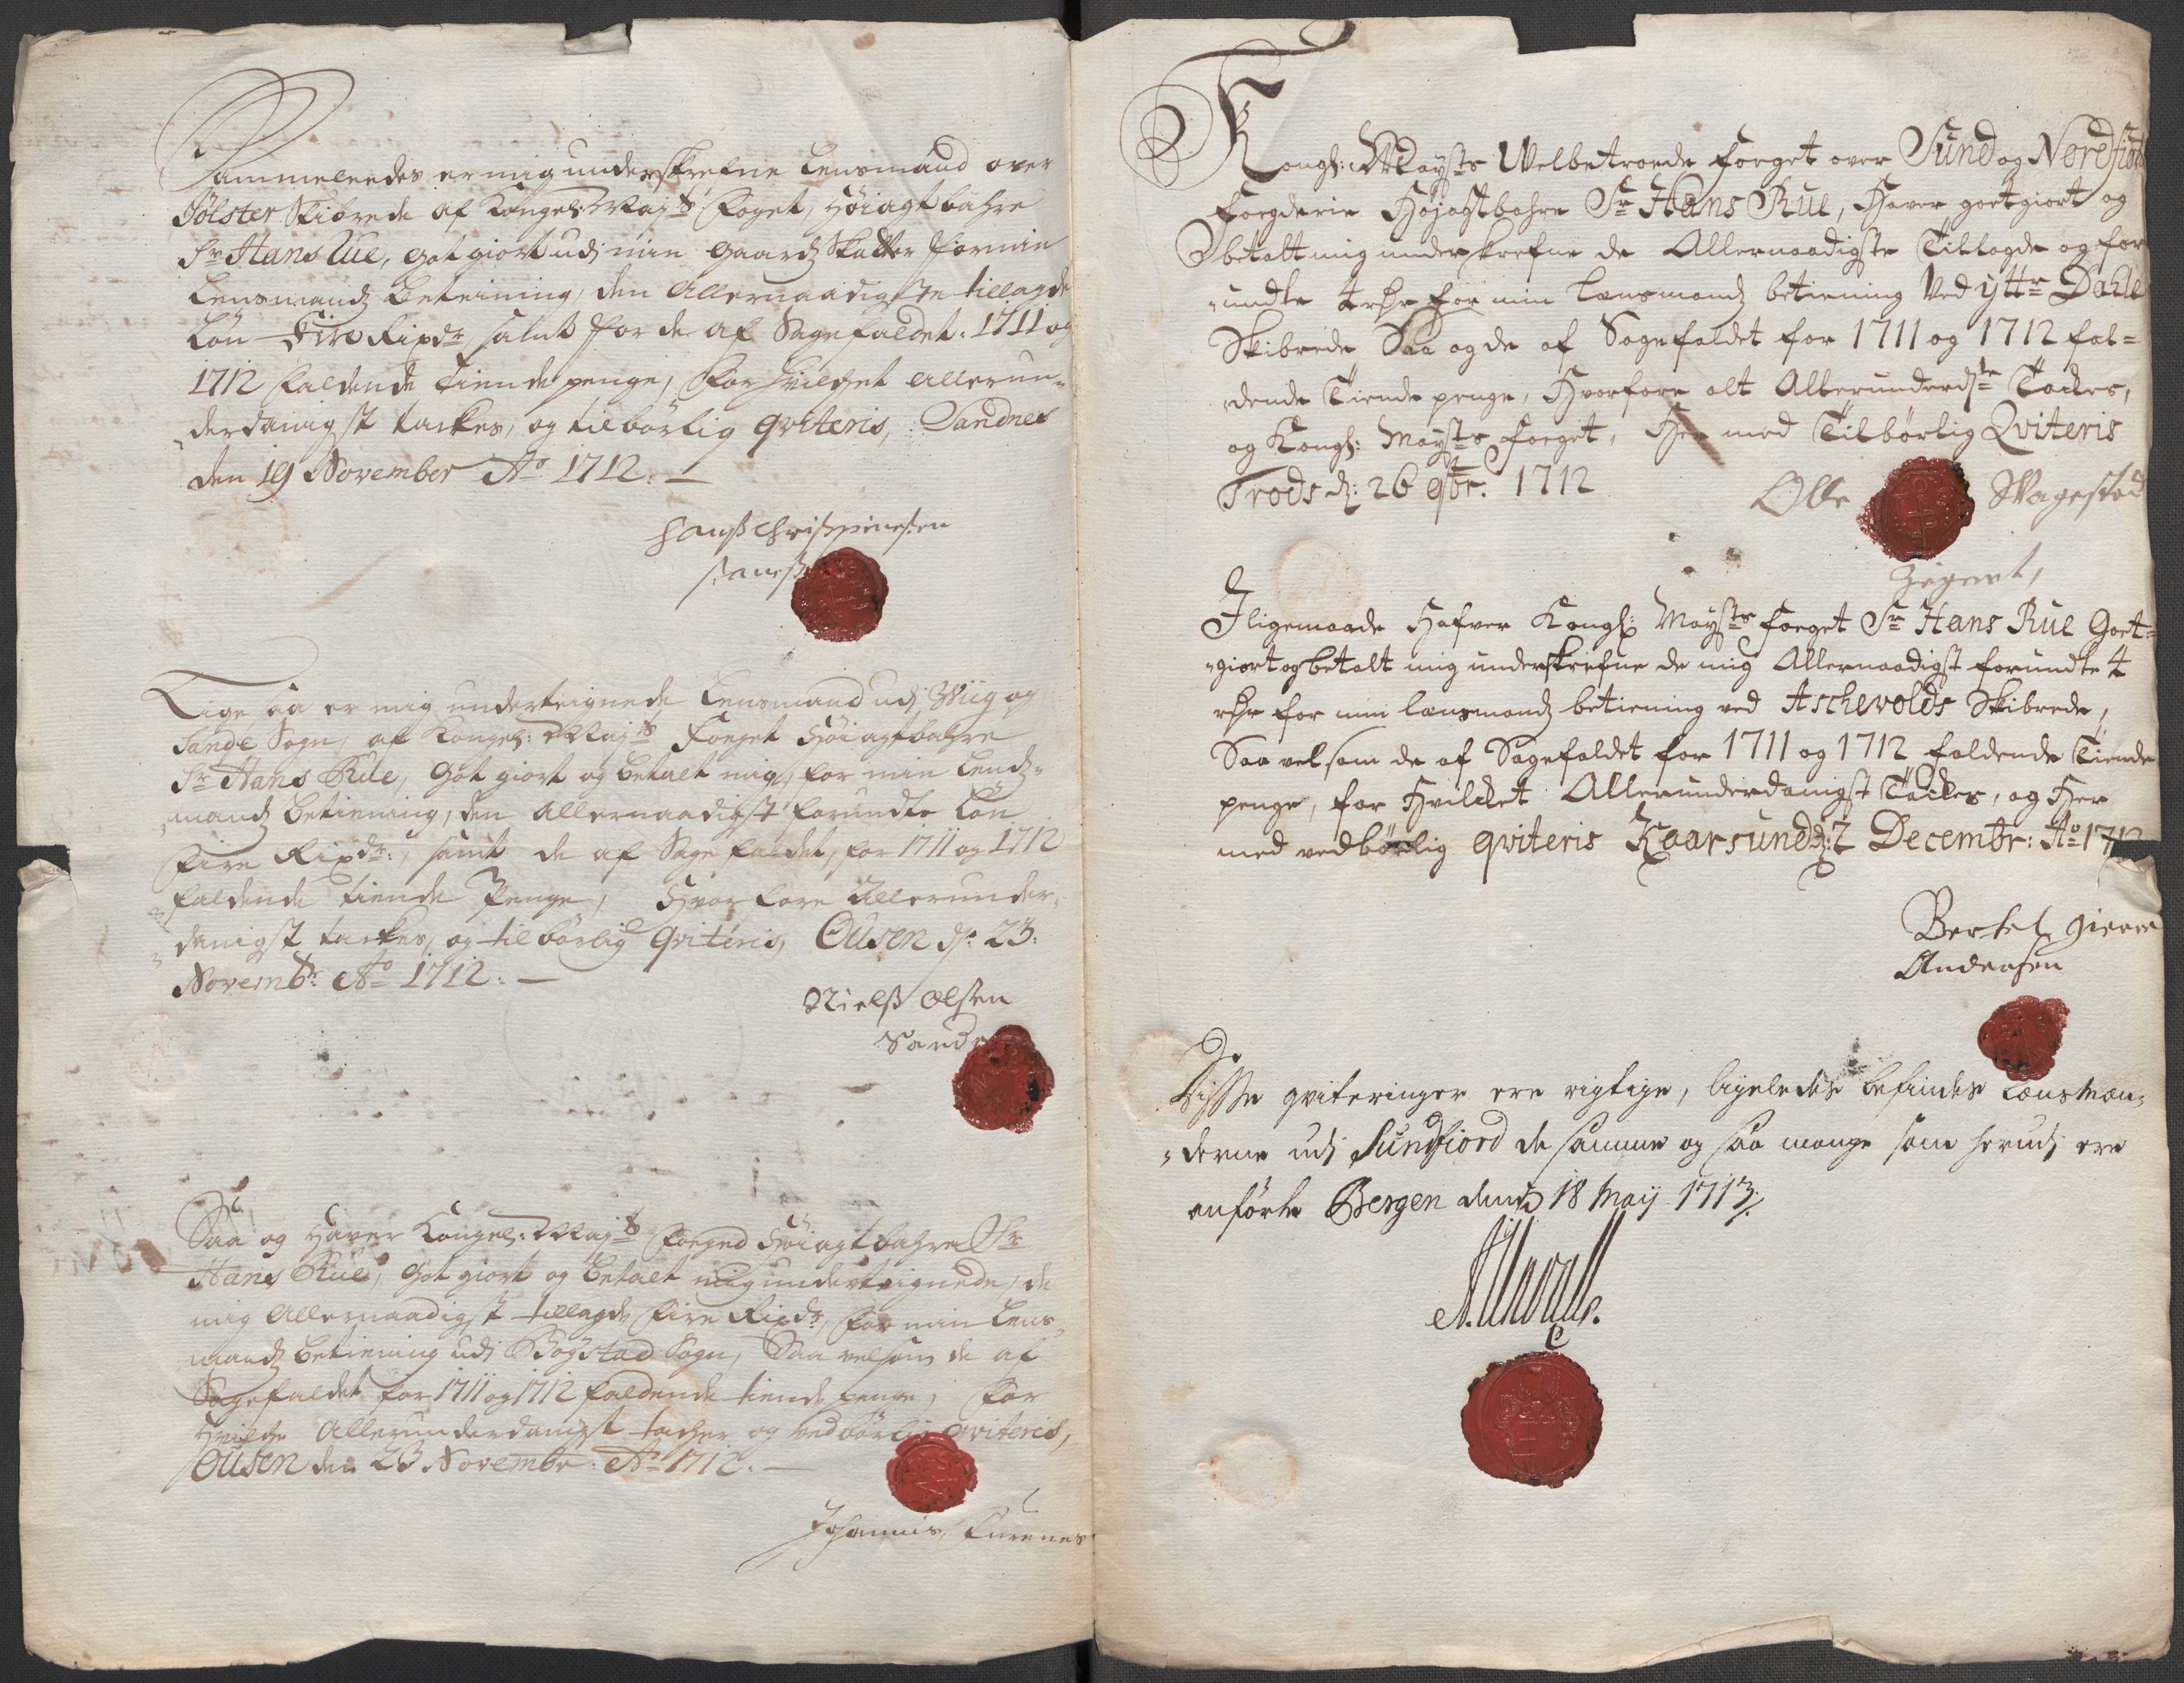 Sammeleedes er mig underskrefne Lensmand over
Jølster Skibrede af Kongel: Maj:ts Foget, Høiagtbahre
Sr Hans Rue, got giort udj min gaardz Skatter for min
Lensmandz betiening, den allernaadigste tillagde
Løn Fire Rixdr, samt for de af Sagefaldet: 1711 og
1712 faldende tiende penge, For hvilchet allerun-
derdanigst tackes, og tilbørlig qviteris, Sandnes
den 19 November Ao 1712.
Hanss Christ
Lige saa er mig underteignede Lensmand udj Wiig og
Sande Sogn, af Kongel: Maj:ts Foeget Høiagtbahre
Sr Hans Rue, got giort og betalt mig, for min Lendz-
mandz betiening, den allernaadigst forundte Løn
Fire Rixdr:, samt de af Sage faldet, for 1711 og 1712
faldende tiende Penge, Hvor fore allerunder-
danigst tackes, og tilbørlig qviteris, Ousen d: 23:
Novembr: Ao 1712.
Nielss Olsen
Sande
Saa og Haver Kongel: Maj:ts Foeged Høiagtbahre Sr
Hans Rue, got giort og betalt mig underteignede, de
mig allernaadigst tillagde Fire Rixdr, for min Lens-
mandz betiening udj Bøgstad Sogn, Saa velsom de af
Sagefaldet for 1711 og 1712 faldende tiende penge, For
Hvilche Allerunderdanigst tacher og vedbørlig qviteris,
Ousen den 23 Novembr: Ao 1712.
Johannis Furenes
Kongl: Mayts Welbetroede Foeget over Sund og Nordfiord
Foegderie Højagtbahre Sr Hans Rue, Haver goetgiort og
betalt mig underskrefne de Allernaadigste Tillagde og for
undte 4 rdr for min Lensmandz betiening Ved ytter Dahle
Skibrede Saa og de af Sagefaldet for 1711 og 1712 fal=
dende Tiende penge, Hvorfore alt Allerunderdste Tackes,
og Kongl: Mayts Foeget, Her med Tilbørlig Qviteris
Trods d: 26 9br: 1712
Olle Wagestad
Iligemaade Hafver Kongl: Mayts Foeget Sr Hans Rue Goet=
giort og betalt mig underskrefne de mig Allernaadigst forundte 4
rdr for min Lensmandz betiening ved Aschevolds Skibrede,
Saa vel som de af Sagefaldet for 1711 og 1712 faldende Tiende
penge, for Hvilcket Allerunderdanigst Tackes, og Her
med vedbørlig qviteris Kaarsund d: 2 Decembr: Ao 1712
Bertel
Andersen
Disse qviteringer ere rigtige, ligeledes befindes Lensmæn-
derne udj Sundfiord de samme og saa mange som herudj ere
anførte Bergen dend 18 Maij 1713.